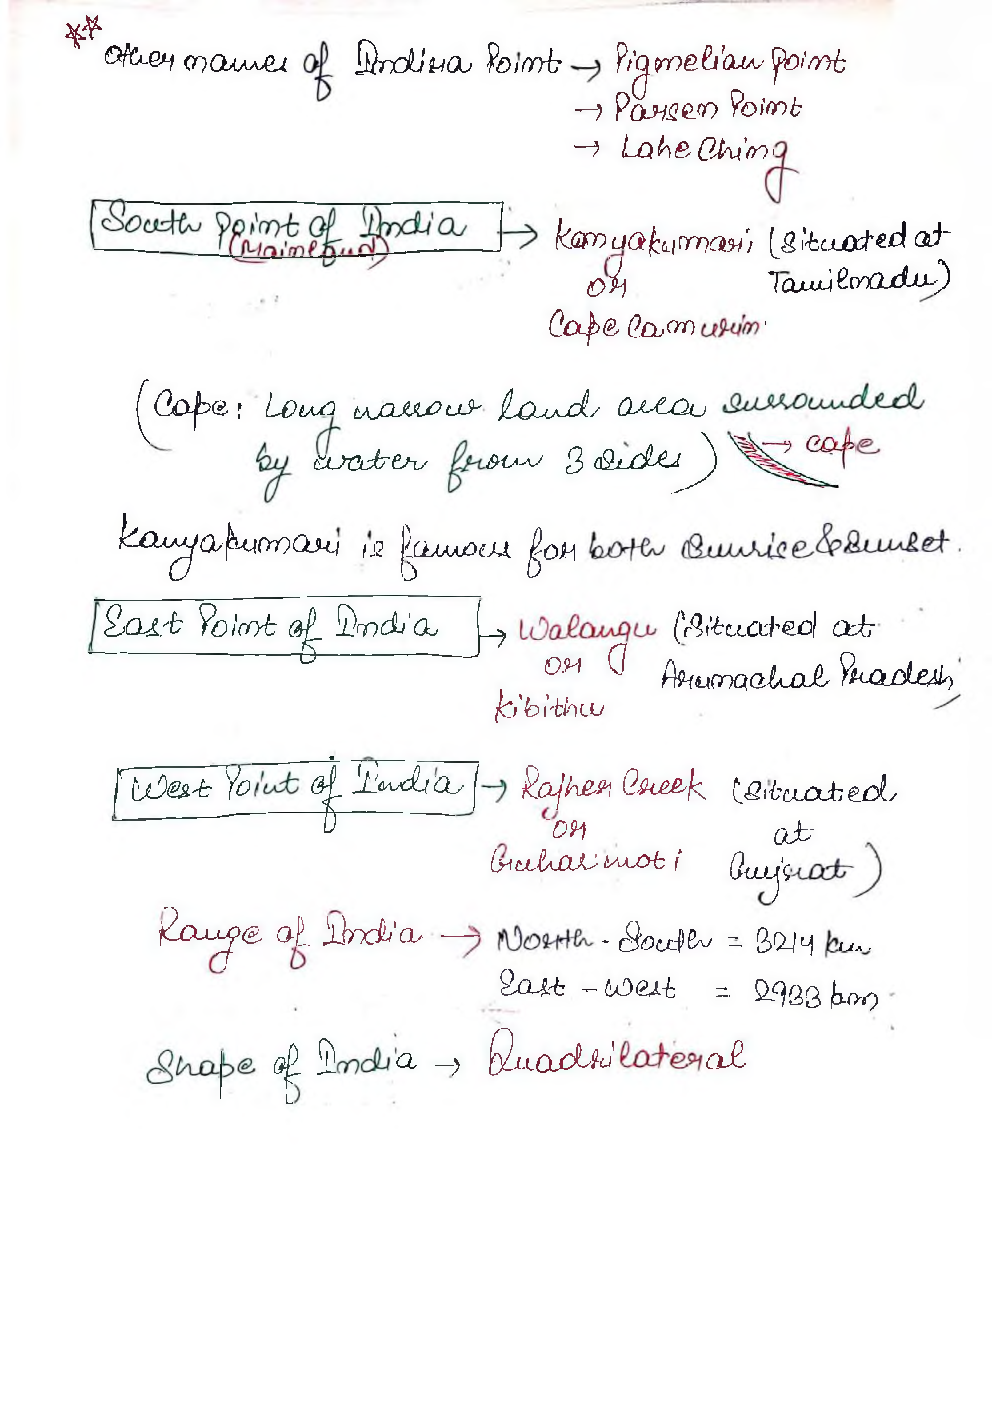 Other names of Indira Point → Pigmelian Point
→ Parsen Point
→ Lahe Ching
South Point of India → Kanyakumari (Situated at
(Mainland)
or Tamilnadu)
Cape Camurin
(Cape: Long narrow land area surrounded
by water from 3 sides) → cape
Kanyakumari is famous for both Sunrise & Sunset.
East Point of India → Walangu (Situated at
or Arunachal Pradesh)
Kibithu
West Point of India → Rajher Creek (Situated
or at
Guhar moti Gujrat)
Range of India → North - South = 3214 km
East - West = 2933 km
Shape of India → Quadrilateral